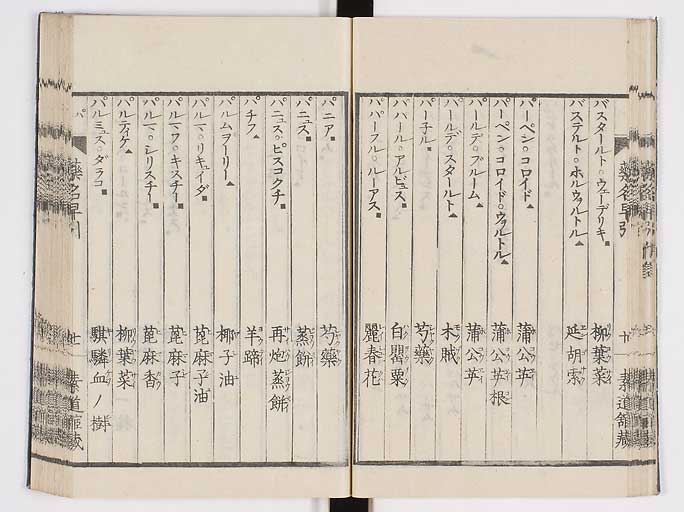 バスタールト。ウェーデリキ■ 柳葉菜
バステルト。ホルウァルトル▲ 延胡索
パーペン。コロイド▲ 蒲公英
パーペン。コロイド。ウァルトル▲ 蒲公英根
パールデ。ブルーム▲ 蒲公英
パールデ。スタールト▲ 木賊
パー子ル■ 芍藥
パパール。アルビュス■ 白罌粟
パパーフル。ルーアス■ 麗春花
藥名早引
パニア■ 芍藥
パニュス■ 蒸餅
パニュス。ピスコクチ■ 再炮蒸餅
パチフ▲ 羊蹄
パルムヲーリー▲ 椰子油
パルマ。リキュイダ■ 蓖麻子油
パルマワ。キスチー■ 蓖麻子
パルマ。シリスチー■ 蓖麻香
パルティゲ▲ 柳葉菜
パルミュス。ダラコ■ 騏驎血ノ樹
藥名早引